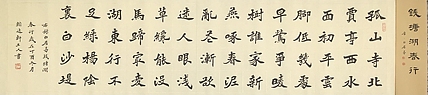 錢塘湖春行
孤山寺北
賈亭西水
面初平雲
腳低幾處
早鶯爭暖
樹誰家新
燕啄春泥
亂花漸欲
迷人眼淺
草纔能沒
馬蹄最愛
湖東行不
足綠楊陰
裏白沙堤